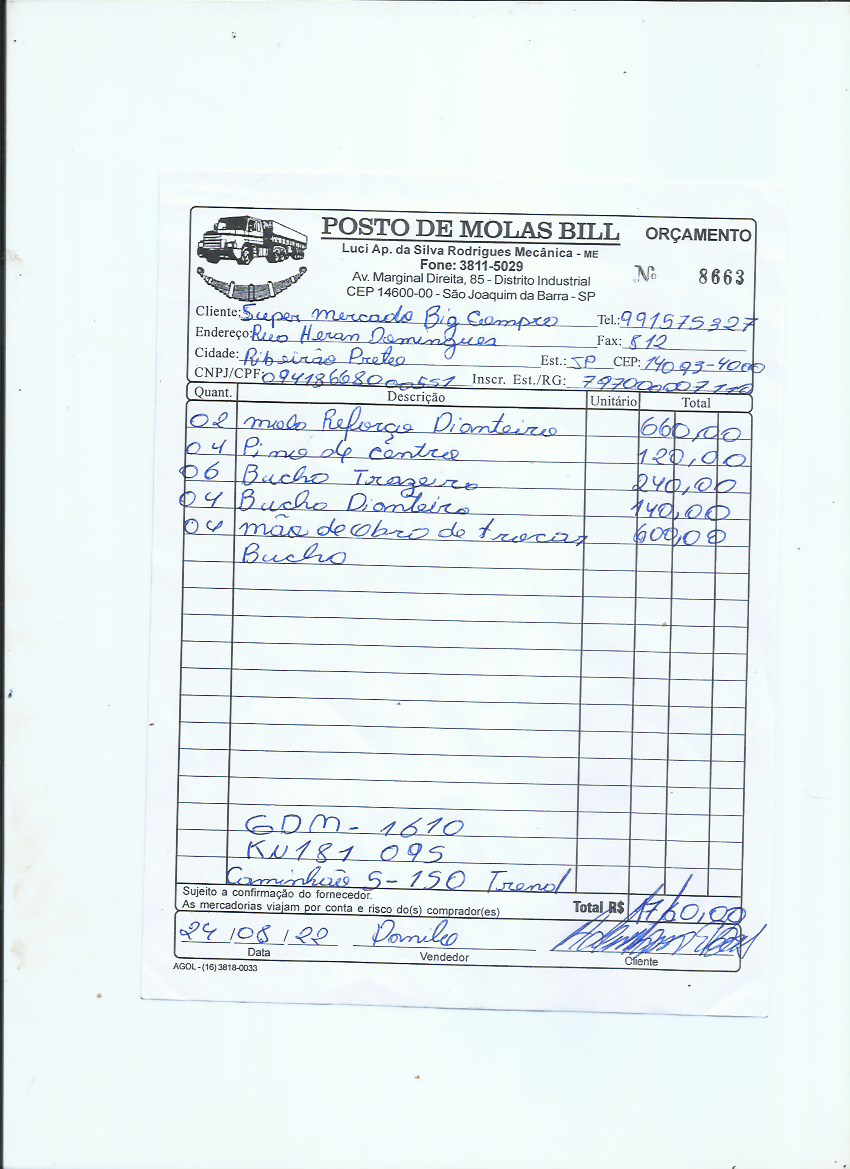 POSTO DE MOLAS BILL
ORÇAMENTO
Luci Ap. da Silva Rodrigues Mecânica - ME
Fone: 3811-5029
Nº 8663
Av. Marginal Direita, 85 - Distrito Industrial
CEP 14600-00 - São Joaquim da Barra - SP
Cliente: Super mercado Big Compra Tel.: 991575327
Endereço: Rua Heran Domingues Fax: 812
Cidade: Ribeirão Preto Est.: SP CEP: 14093-4000
CNPJ/CPF Inscr. Est./RG:
Quant. Descrição Unitário Total
02 mola Reforço Dianteira 660,00
04 Pino de centro 120,00
06 Bucha Trazeira 240,00
04 Bucha Dianteira 140,00
04 mão de obra de trocar 600,00
Bucha
GDM- 1610
KN181 095
Caminhão S-150 Trend
Sujeito a confirmação do fornecedor.
As mercadorias viajam por conta e risco do(s) comprador(es) Total R$ 1760,00
24/08/22 Danilo
Data Vendedor Cliente
AGOL - (16) 3818-0033